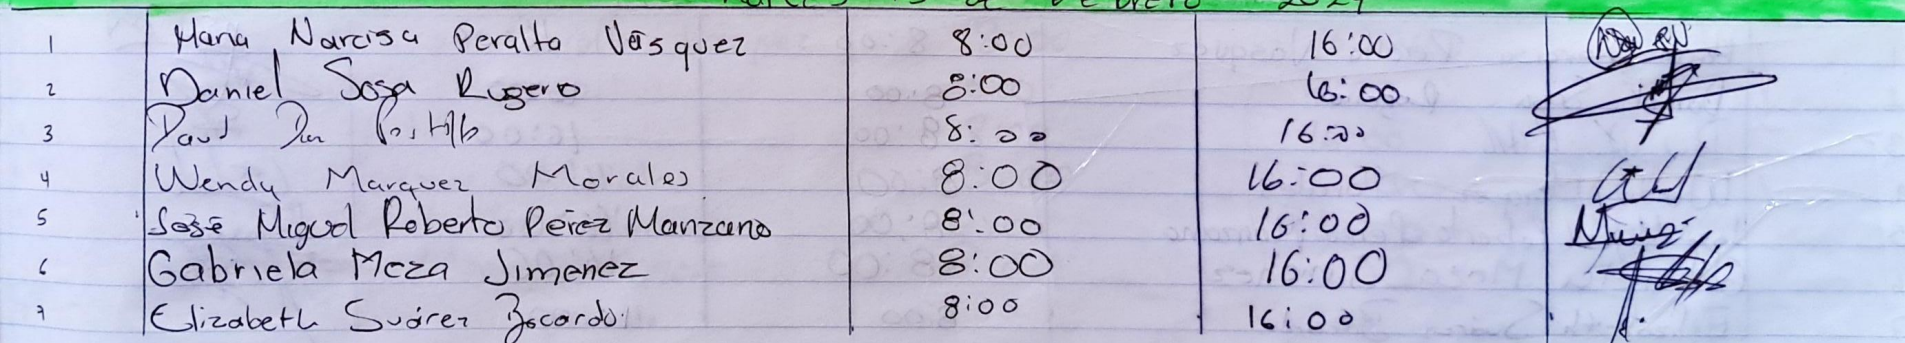 1 Maria Narcisa Peralta Vásquez 8:00 16:00
2 Daniel Sosa Rugero 8:00 16:00
3 David 8:00 16:00
4 Wendy Marquez Morales 8:00 16:00
5 José Miguel Roberto Pérez Manzano 8:00 16:00
6 Gabriela Meza Jimenez 8:00 16:00
7 Elizabeth Suárez 8:00 16:00